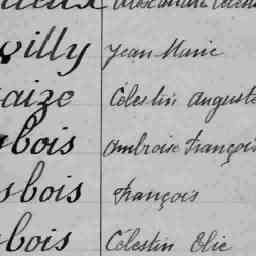 villy Jean Marie
aize Célestin Auguste
bois Ambroise François
sbois François
bois Célestin Elie